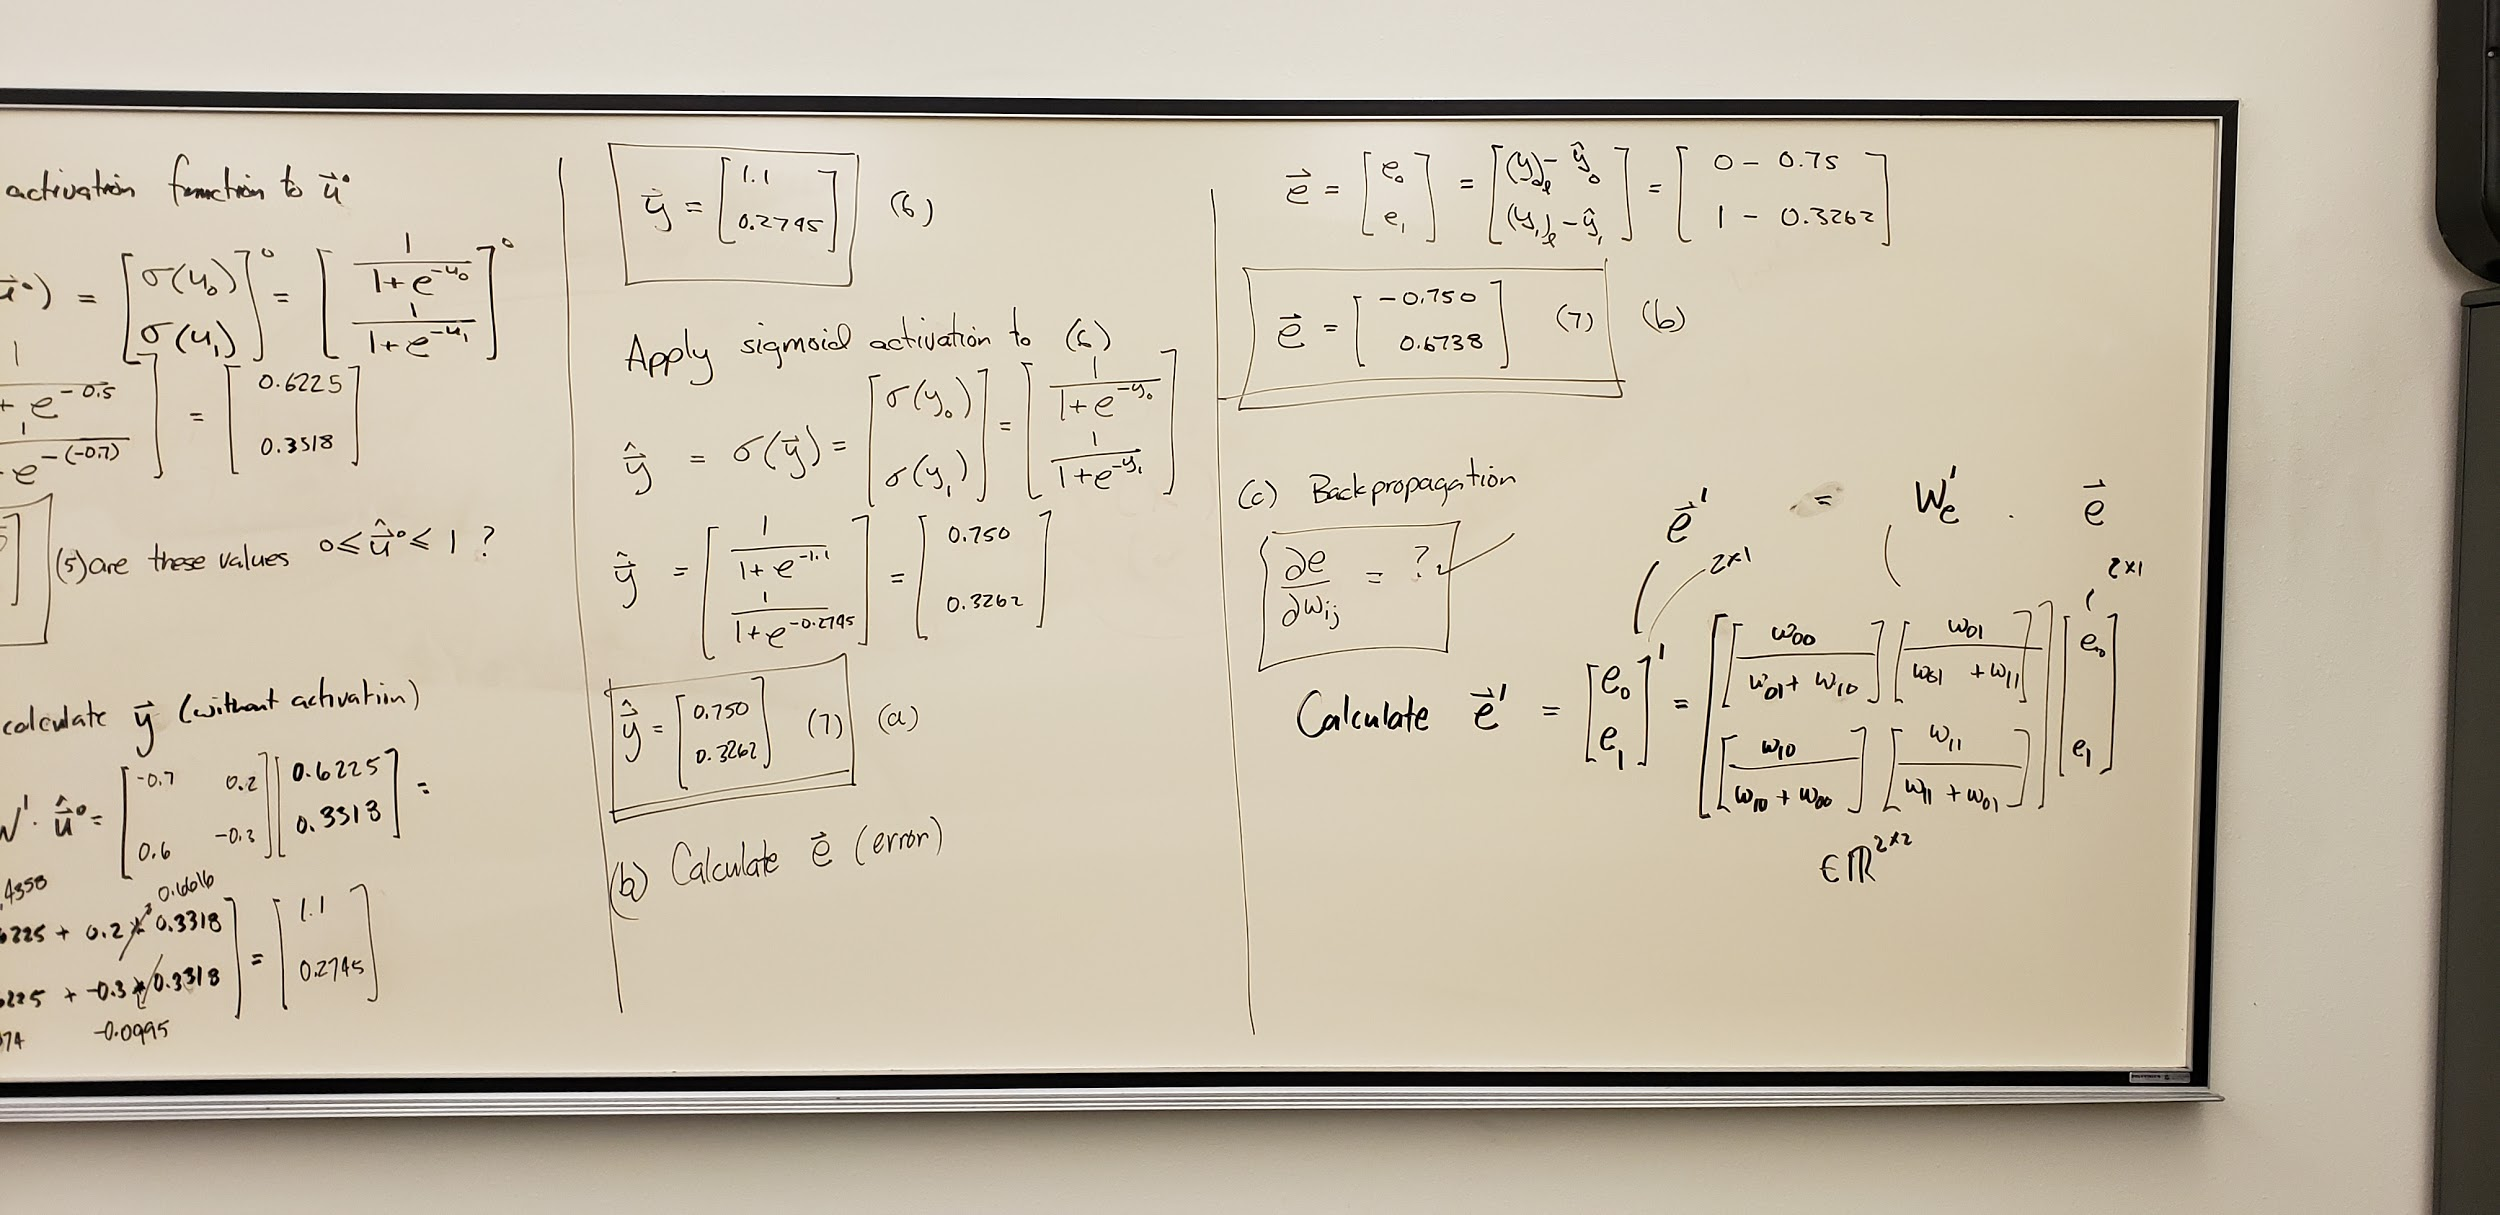 activation function to u⃗°
u⃗°) = [σ(u₀) σ(u₁)]° = [1/(1+e^-u₀) 1/(1+e^-u₁)]°
1
+ e^-0.5
1
e^-(-0.7)
= [0.6225 0.3318]
(5) are these values 0 ≤ û⃗° ≤ 1 ?
calculate y⃗ (without activation)
W¹ · û⃗° = [-0.7 0.2 0.6 -0.3] [0.6225 0.3318] =
.4358 0.6616
6225 + 0.2 * 0.3318
6225 + -0.3 * 0.3318
= [1.1 0.2745]
74 -0.0995
y⃗ = [1.1 0.2745] (6)
Apply sigmoid activation to (6)
ŷ⃗ = σ(y⃗) = [σ(y₀) σ(y₁)] = [1/(1+e^-y₀) 1/(1+e^-y₁)]
ŷ⃗ = [1/(1+e^-1.1) 1/(1+e^-0.2745)] = [0.750 0.3262]
ŷ⃗ = [0.750 0.3262] (7) (a)
(b) Calculate e⃗ (error)
e⃗ = [e₀ e₁] = [(y₀)ₗ - ŷ₀ (y₁)ₗ - ŷ₁] = [0 - 0.75 1 - 0.3262]
e⃗ = [-0.750 0.6738] (7) (b)
(c) Backpropagation
∂e/∂w_ij = ?
e⃗¹ = W_e¹ · e⃗
2×1 2×1
Calculate e⃗¹ = [e₀ e₁]¹ = [[w₀₀/(w₀₁ + w₁₀)] [w₀₁/(w₀₁ + w₁₁)] [w₁₀/(w₁₀ + w₀₀)] [w₁₁/(w₁₁ + w₀₁)]] [e₀ e₁]
∈ ℝ^2×2